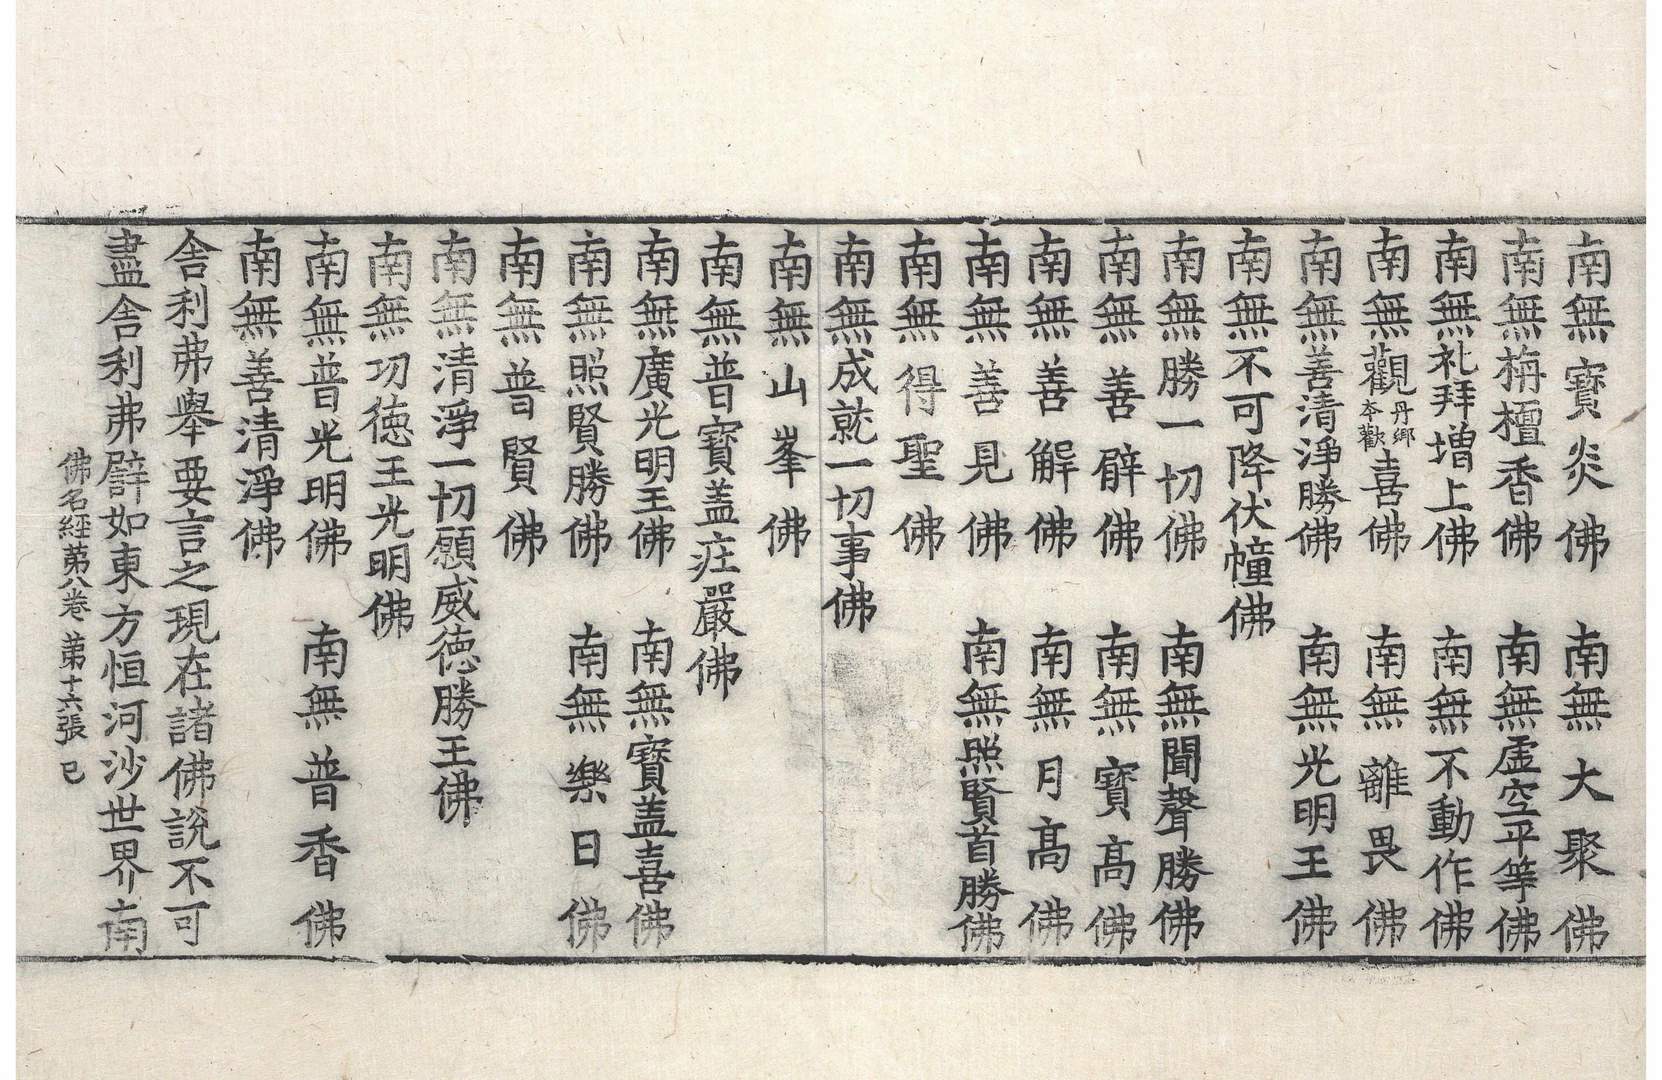 南無寶炎佛　南無大聚佛
南無栴檀香佛　南無虛空平等佛
南無礼拜增上佛　南無不動作佛
南無觀丹鄉本歡喜佛　南無離畏佛
南無善清淨勝佛　南無光明王佛
南無不可降伏幢佛
南無勝一切佛　南無聞聲勝佛
南無善臂佛　南無寶高佛
南無善解佛　南無月高佛
南無善見佛　南無照賢首勝佛
南無得聖佛
南無成就一切事佛
南無山峯佛
南無普寶盖疘嚴佛
南無廣光明王佛　南無寶盖喜佛
南無照賢勝佛　南無樂日佛
南無普賢佛
南無清淨一切願威德勝王佛
南無功德王光明佛
南無普光明佛　南無普香佛
南無善清淨佛
舍利弗舉要言之現在諸佛說不可
盡舍利弗譬如東方恒河沙世界南
佛名經第八卷　第十六張　已